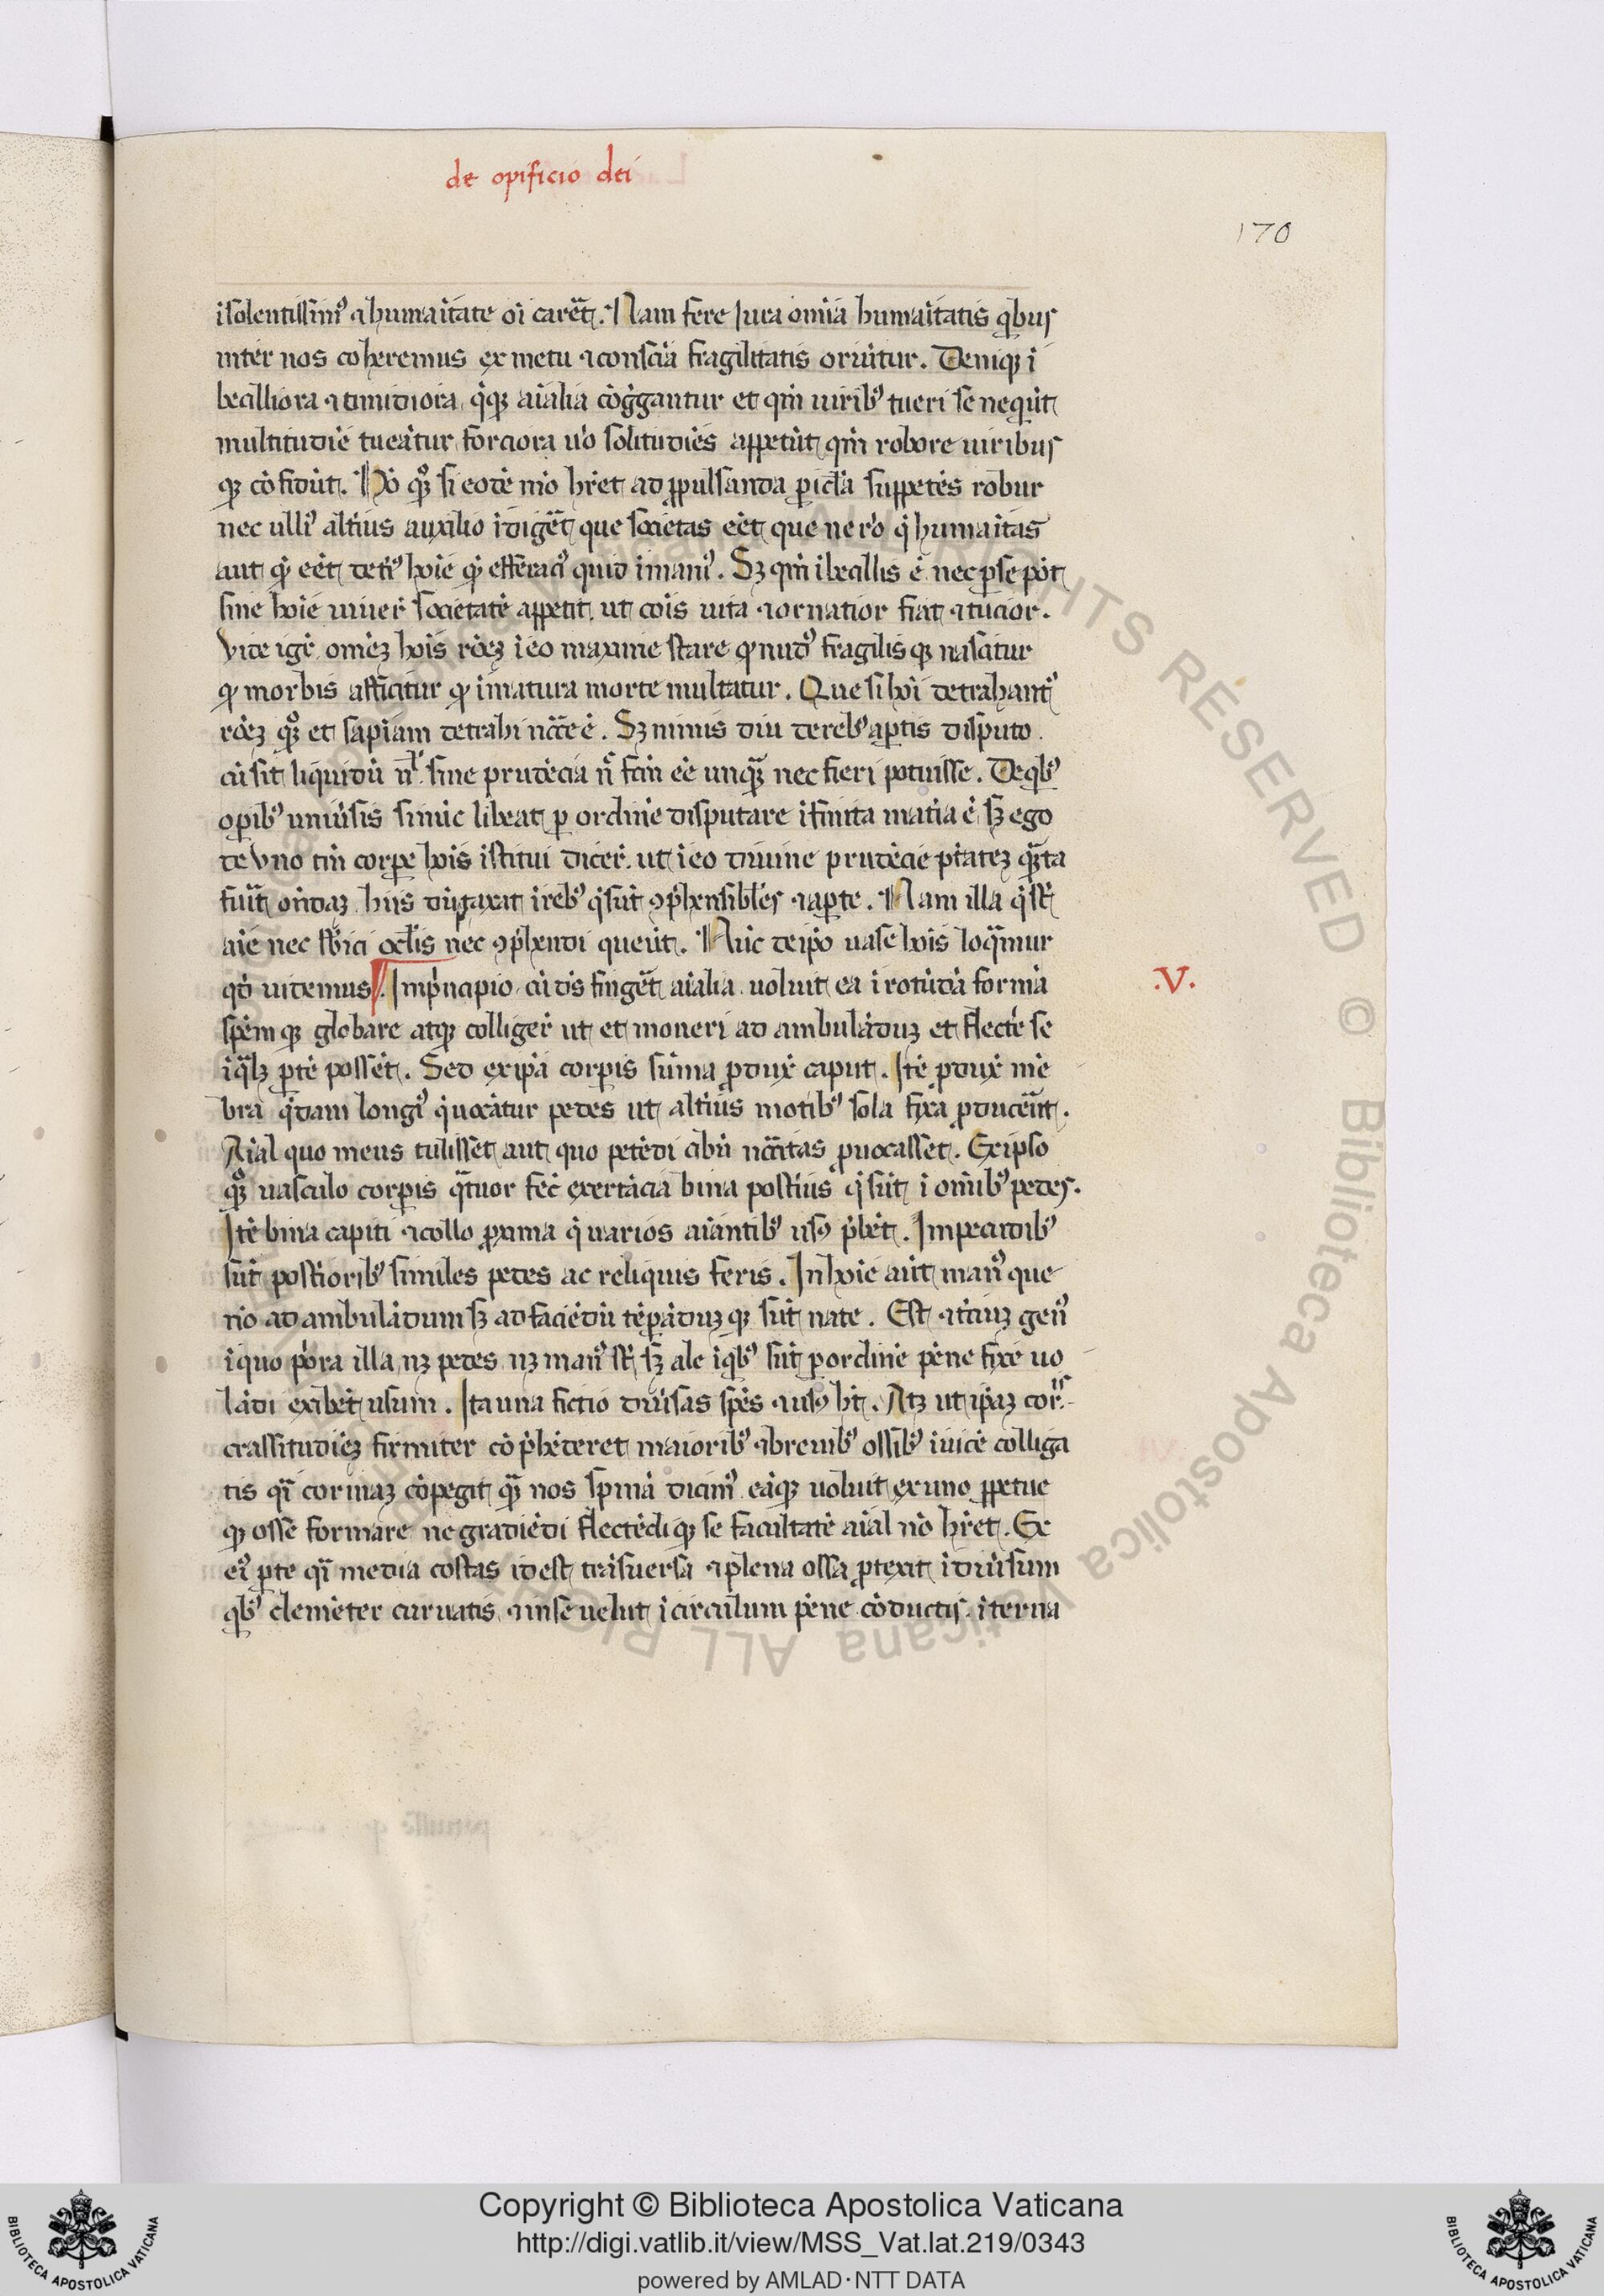 de opificio dei
170
isolentissimꝰ ⁊ humaĩtate oĩ carẽt. Nam fere Iura om̃ia humaĩtatis qͥbus
inter nos coheremus ex metu ⁊ conscĩa fragilitatis oriũtur. Deniqꝫ ĩ
becilliora ⁊ timidiora qͥqꝫ aĩalia cõgͥgantur et qm̃ uiribꝰ tueri se nequt̃
multitudiẽ tueãtur forciora uͦo solitudiẽs appetũt qm̃ robore uiribus
qꝫ cõfidũt. Hõ qꝫ si eodẽ mͦo hr̃et ad ꝓpulsanda pic̃la suppetẽs robur
nec ulliꝰ altiͥus auxilio ĩdigẽt que societas eẽt que ne rͦo qͥ humaĩtas
aut qͥ eẽt det̾iꝰ hoĩe qͥ efferaciꝰ quid ĩmaniꝰ. Sꝫ qm̃ ĩbecillis ẽ nec ꝑ se põt
sine hoĩe uiuer̃ societatẽ appetit ut cõis uita ⁊ ornatior fiat ⁊ tucior.
Vide igẽ omẽꝫ hoĩs rõeꝫ ĩ eo maxime stare ꝙ nudꝰ fragilis qꝫ nascitur
ꝙ morbis afficitur ꝙ ĩmatura morte multatur. Que si hoĩ detrahantᷣ
rõeꝫ qꝫ et sapĩam detrahi nc̃cẽ ẽ. Sꝫ nimis diu de rebꝰ aꝑtis disputo
cũ sit liquidũ nͥl sine prudẽcia nͦ fcm̃ eẽ unqꝫ nec fieri potuisse. De qͥbꝰ
oꝑibꝰ uniũsis si nũc libeat ꝑ ordinẽ disputare ĩfinita matĩa ẽ sꝫ ego
de Vno tm̃ corꝑe hoĩs ĩstitui dicer̃ ut ĩ eo diuine prudẽcie pt̃ateꝫ qͣta
fuit̃ on̾daꝫ hiis dũtaxat ĩ rebꝰ qͥ sũt ꝯp̃hensibiles ⁊ aꝑte. Nam illa qͥ st̃
aĩe nec sb̃ici oclĩs nec ꝯp̃hendi queũt. Nũc de ip̃o uase hoĩs loqͣmur
qd̃ uidemus. Imp̃ncipio cũ dẽs fingẽt aĩalia uoluit ea ĩ rotũdã formã
spẽm qꝫ globare atqꝫ colliger̃ ut et moueri ad ambulãduꝫ et flectẽ se
ĩ qͣlꝫ ꝑtẽ possẽt. Sed ex ip̃ã corꝑis sũma ꝓdux̃ caput. Itẽ ꝓdux̃ mẽ
bra qͥdam longiꝰ qͥ uocãtur pedes ut altiͥus motibꝰ sola fixa ꝓducẽut.
Aĩal quo meus tulisset aut quo petẽdi cibũ nc̃c̃itas ꝓuocasset. Ex ipso
qꝫ uasculo corꝑis qͣtuor fec̃ exertãcia bina post̃ius qͥ sũt ĩ om̃ibꝰ pedes.
Itẽ bina capiti ⁊ collo ꝓxima qͥ uarios aĩantibꝰ usꝯ p̃bẽt. In pecudibꝰ
sũt post̃ioribꝰ similes pedes ac reliquis feris. In hoĩe aũt manꝰ que
nõ ad ambulãdum sꝫ ad faciẽdũ tẽꝑãduꝫ qꝫ sũt nate. Est ⁊ t̃ciuꝫ genꝰ
ĩ quo p̃ora illa nꝫ pedes nꝫ manꝰ st̃ sꝫ ale ĩ qͥbꝰ sũt ꝑ ordinẽ pẽne fixe uo
lãdi exibẽt usum. Ita una fictio diũsas spẽs ⁊ usꝯ ht̃. Atqꝫ ut ip̃aꝫ cor.ˡⁱˢ
crassitudiẽꝫ firmiter cõp̃hẽderet maioribꝰ ⁊ breuibꝰ ossibꝰ ĩuicẽ colliga
tis qͣi corinaꝫ cõpegit qͣꝫ nos spinã dicimꝰ eãqꝫ uoluit ex uno ꝑpetue
qꝫ osse formare ne gradiẽdi flectẽdi qꝫ se facultatẽ aĩal nõ hr̃et. Ex
eiꝰ ꝑte qͣi media costas id est trãsuersa ⁊ plena ossa ꝓtexit ĩ diũsum
qͥbꝰ clemẽter curuatis ⁊ in se uelut ĩ circulum pẽne cõductis ĩterna
.V.
Copyright © Biblioteca Apostolica Vaticana
http://digi.vatlib.it/view/MSS_Vat.lat.219/0343
powered by AMLAD·NTT DATA
BIBLIOTECA APOSTOLICA VATICANA
BIBLIOTECA APOSTOLICA VATICANA